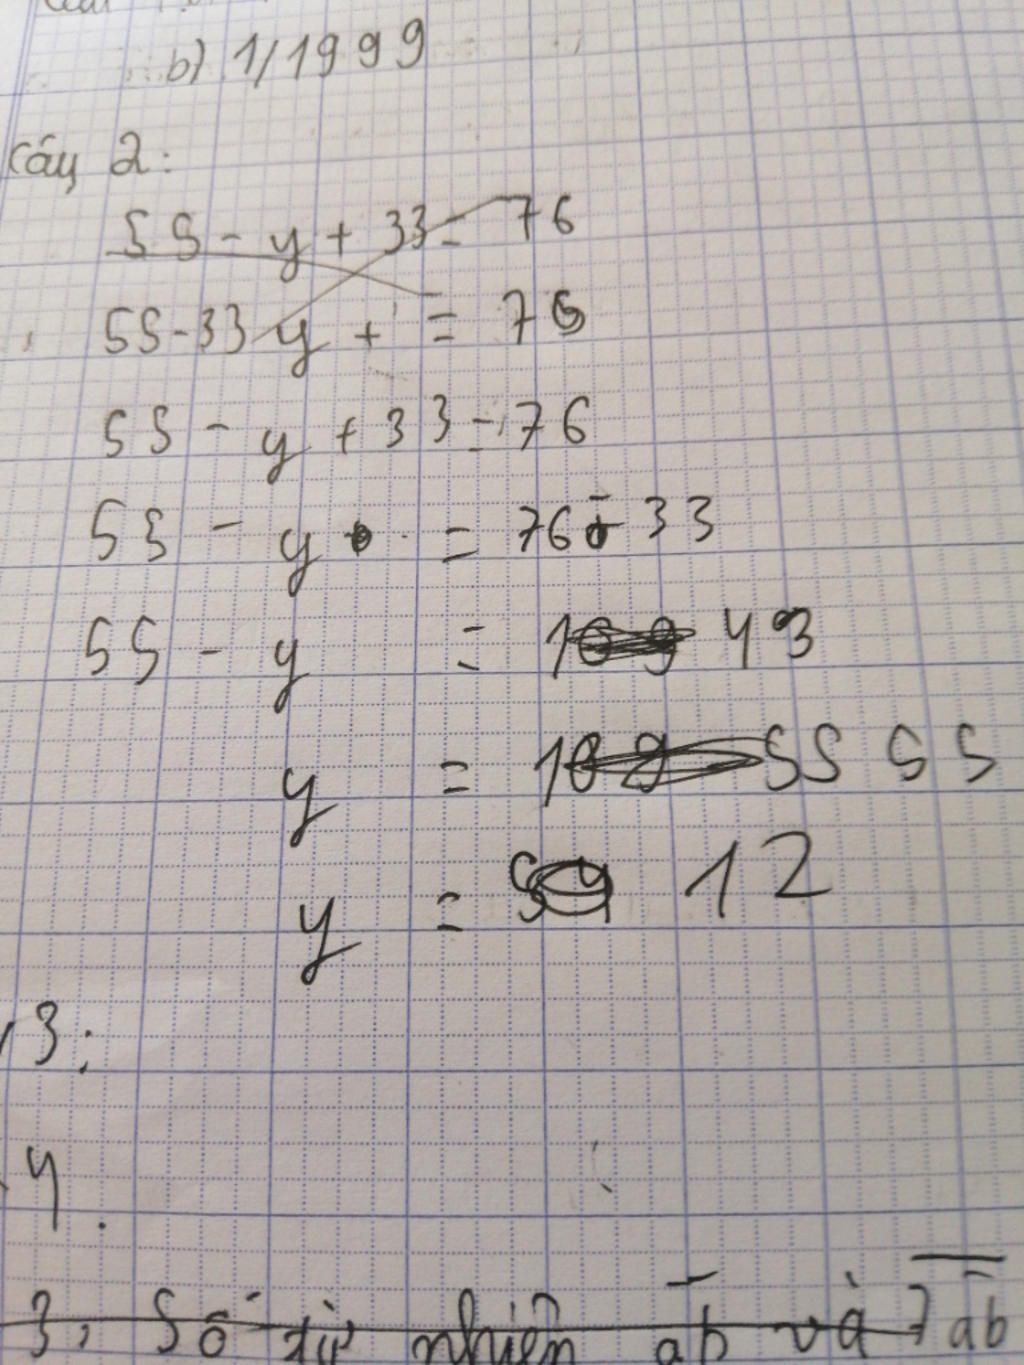 b) 1/1999
Câu 2:
55 - y + 33 = 76
55 - 33 y + = 76
55 - y + 33 = 76
55 - y = 76 - 33
55 - y = 43
y = 55 55
y = 12
3:
4.
3: Số tự nhiên ab và 7ab